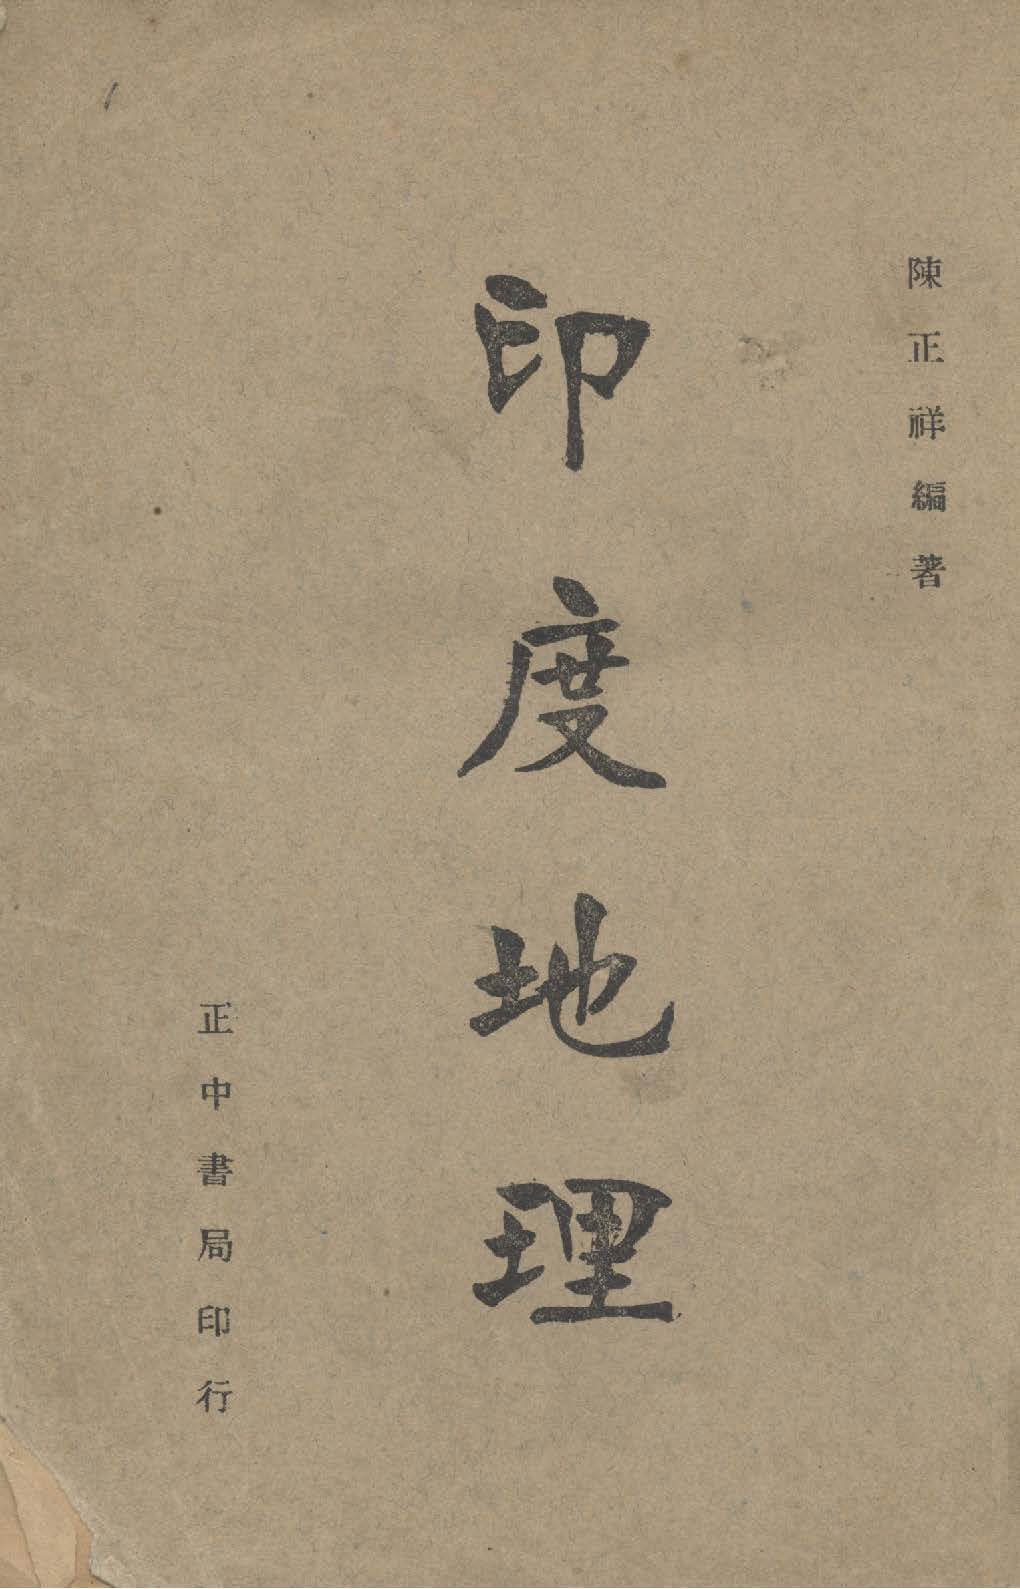 陳正祥編著
印度地理
正中書局印行